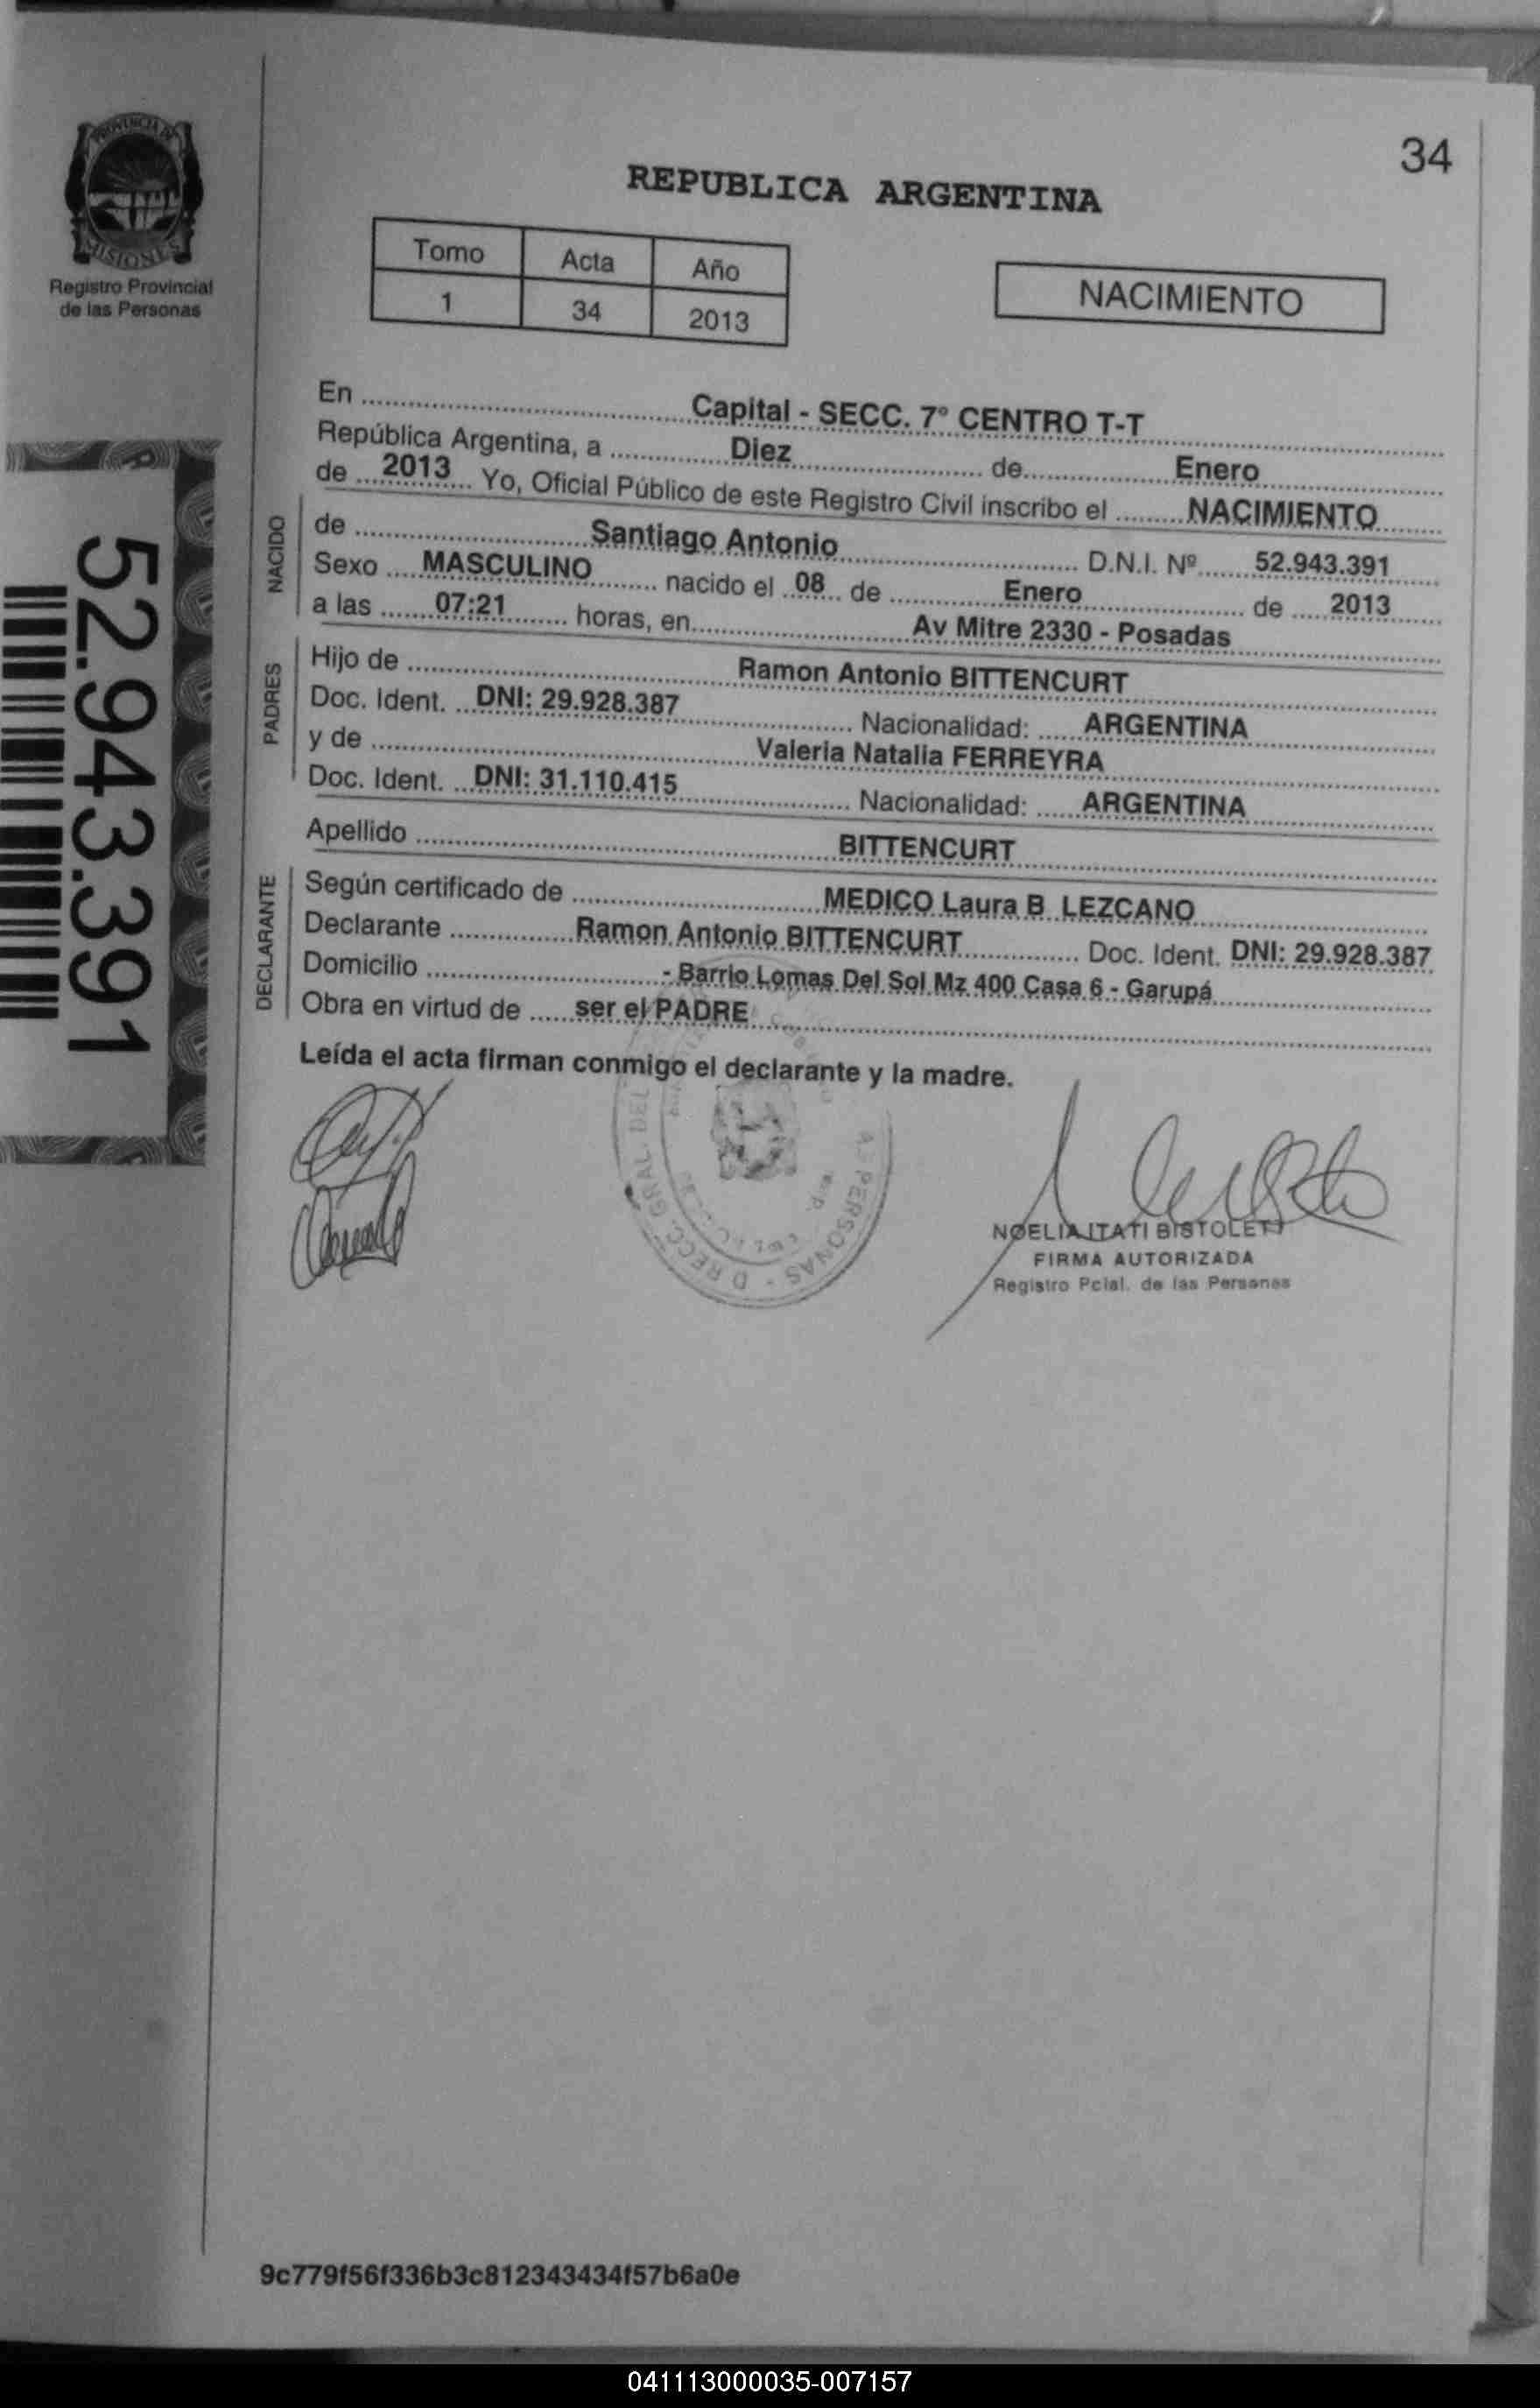 34
PROVINCIA DE
MISIONES
Registro Provincial
de las Personas
REPUBLICA ARGENTINA
Tomo Acta Año
1 34 2013
NACIMIENTO
En Capital - SECC. 7º CENTRO T-T
República Argentina, a Diez de Enero
de 2013 Yo, Oficial Público de este Registro Civil inscribo el NACIMIENTO
NACIDO
de Santiago Antonio D.N.I. Nº 52.943.391
Sexo MASCULINO nacido el 08 de Enero de 2013
a las 07:21 horas, en Av Mitre 2330 - Posadas
PADRES
Hijo de Ramon Antonio BITTENCURT
Doc. Ident. DNI: 29.928.387 Nacionalidad: ARGENTINA
y de Valeria Natalia FERREYRA
Doc. Ident. DNI: 31.110.415 Nacionalidad: ARGENTINA
Apellido BITTENCURT
DECLARANTE
Según certificado de MEDICO Laura B LEZCANO
Declarante Ramon Antonio BITTENCURT Doc. Ident. DNI: 29.928.387
Domicilio - Barrio Lomas Del Sol Mz 400 Casa 6 - Garupá
Obra en virtud de ser el PADRE
Leída el acta firman conmigo el declarante y la madre.
52.943.391
GRAL. DEL
PERSONAS
NOELIA ITATI BISTOLETTI
FIRMA AUTORIZADA
Registro Pcial. de las Personas
9c779f56f336b3c812343434f57b6a0e
041113000035-007157